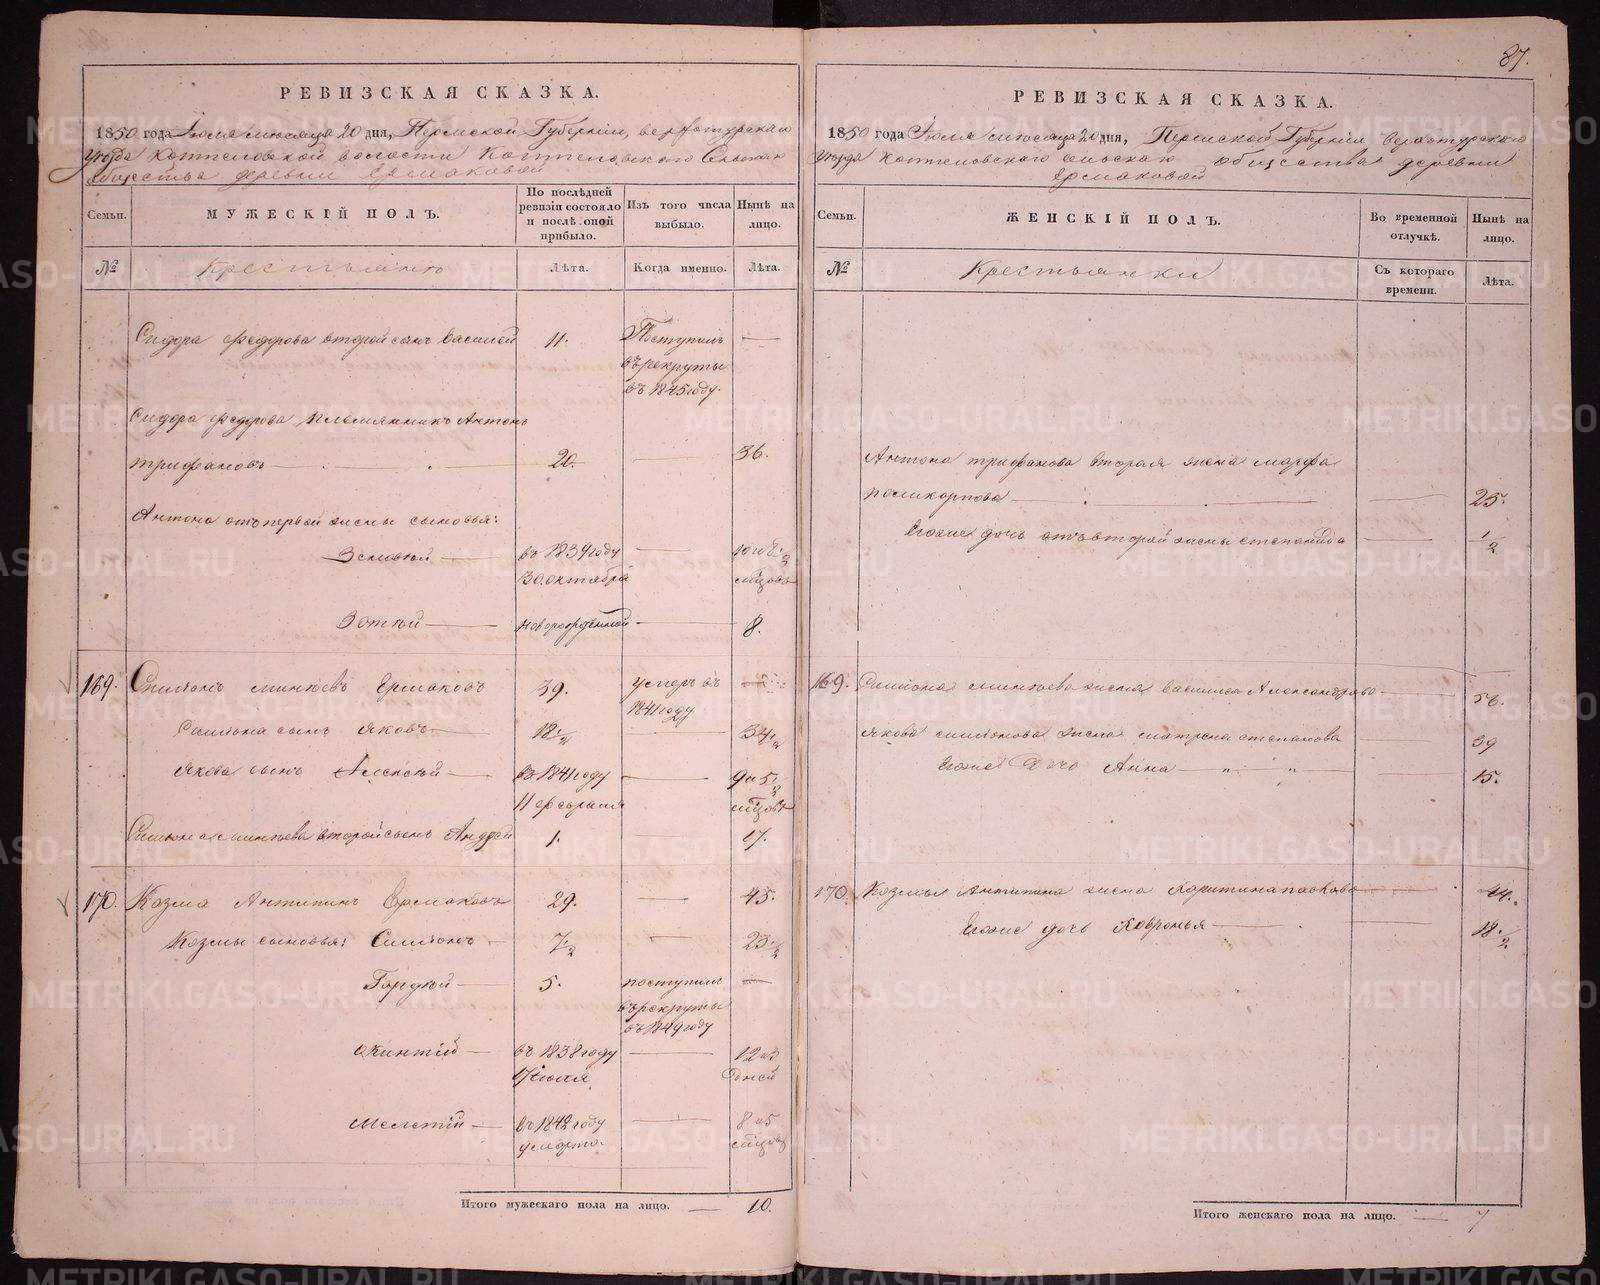 РЕВИЗСКАЯ СКАЗКА.
1850 года Июля месяца 20 дня, Пермской Губерніи, верхотурскаго
уѣзда Коптеловской волости Коптеловскаго Сельскаго
общества деревни Ермаковой
Семьи.
МУЖЕСКІЙ ПОЛЪ.
По послѣдней ревизіи состояло и послѣ оной прибыло.
Изъ того числа выбыло.
Нынѣ на лицо.
№
Крестьяне
Лѣта.
Когда именно.
Лѣта.
Сидора Федорова второй сынъ Василей 11. Поступилъ —
въ рекруты
въ 1845 году.
Сидора Федорова племянникъ Антонъ
трифановъ — 20. — 36.
Антона отъ первой жены сыновья:
Зеновей — въ 1839 году —
30. октября
Зотѣй — новорожденной — 8.
169. Симіонъ минѣевъ Ермаковъ 39. умеръ въ —
1841 году
Симіона сынъ Яковъ 18 1/2 — 34 1/2
Якова сынъ Алексѣй — въ 1841 году — 9 и 5 1/2
11 февраля мѣсцовъ
Симіона минѣева второй сынъ Андрей 1. — 17.
170. Козма Антипинъ Ермаковъ 29. — 45.
Козмы сыновья: Симіонъ — 7 1/2 — 23 1/2
Гордѣй — 5. поступилъ —
въ рекруты
въ 1849 году
Акинтій — въ 1838 году — 12 и 3
17 июля дней
Мелетій — въ 1842 году — 8 и 5
Итого мужескаго пола на лицо. — 10.
87.
РЕВИЗСКАЯ СКАЗКА.
1850 года Июля месяца 20 дня, Пермской Губерніи верхотурскаго
уѣзда Коптеловскаго сельскаго общества деревни
Ермаковой
Семьи.
ЖЕНСКІЙ ПОЛЪ.
Во временной отлучкѣ.
Нынѣ на лицо.
№
Крестьянки
Съ котораго времени.
Лѣта.
Антона трифанова вторая жена марфа
поликарпова — 25.
Егоже дочь отъ второй жены степанида — 1/2
169. Симіона минѣева жена василиса Александрова — 56.
Якова симіонова жена матрена степанова — 39
Егоже Дочь Анна — " " — 15.
170. Козмы Антипина жена Харитина павлова — 44.
Егоже дочь Ховронья — 18 1/2
Итого женскаго пола на лицо. — 7
METRIKI.GASO-URAL.RU